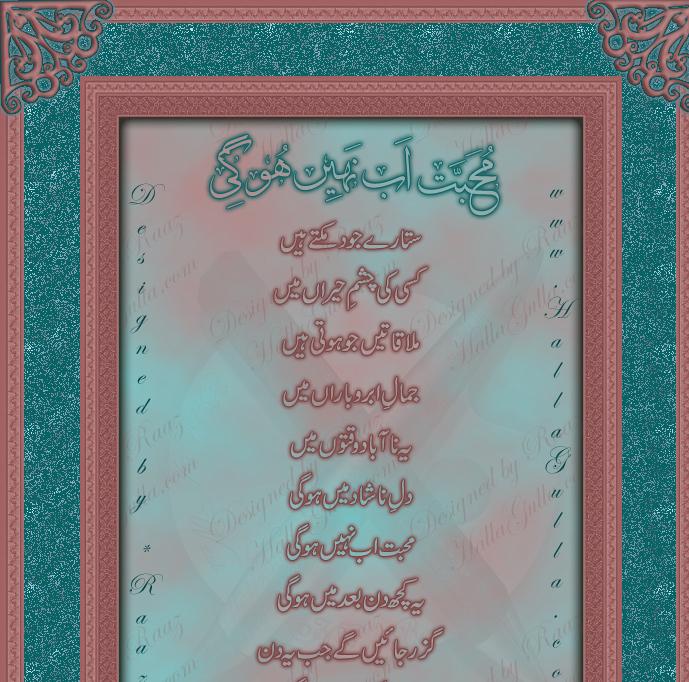 محبت اب نہیں ہو گی
ستارے جو دمکتے ہیں
کسی کی چشمِ حیراں میں
ملاقاتیں جو ہوتی ہیں
جمالِ ابر و باراں میں
یہ نا آباد وقتوں میں
دلِ ناشاد میں ہو گی
محبت اب نہیں ہو گی
یہ کچھ دن بعد میں ہو گی
گزر جائیں گے جب یہ دن
Designed by * Raaz
www.HallaGulla.co